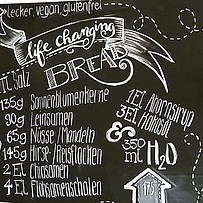 lecker, vegan, glutenfrei
life changing
BREAD
1 TL Salz
135g Sonnenblumenkerne
90g Leinsamen
65g Nüsse/Mandeln
145g Hirse-/Reisflocken
2 EL Chiasamen
4 EL Flohsamenschalen
1 EL Ahornsirup
3 EL Kokosöl
& 350 mL H₂O
175°